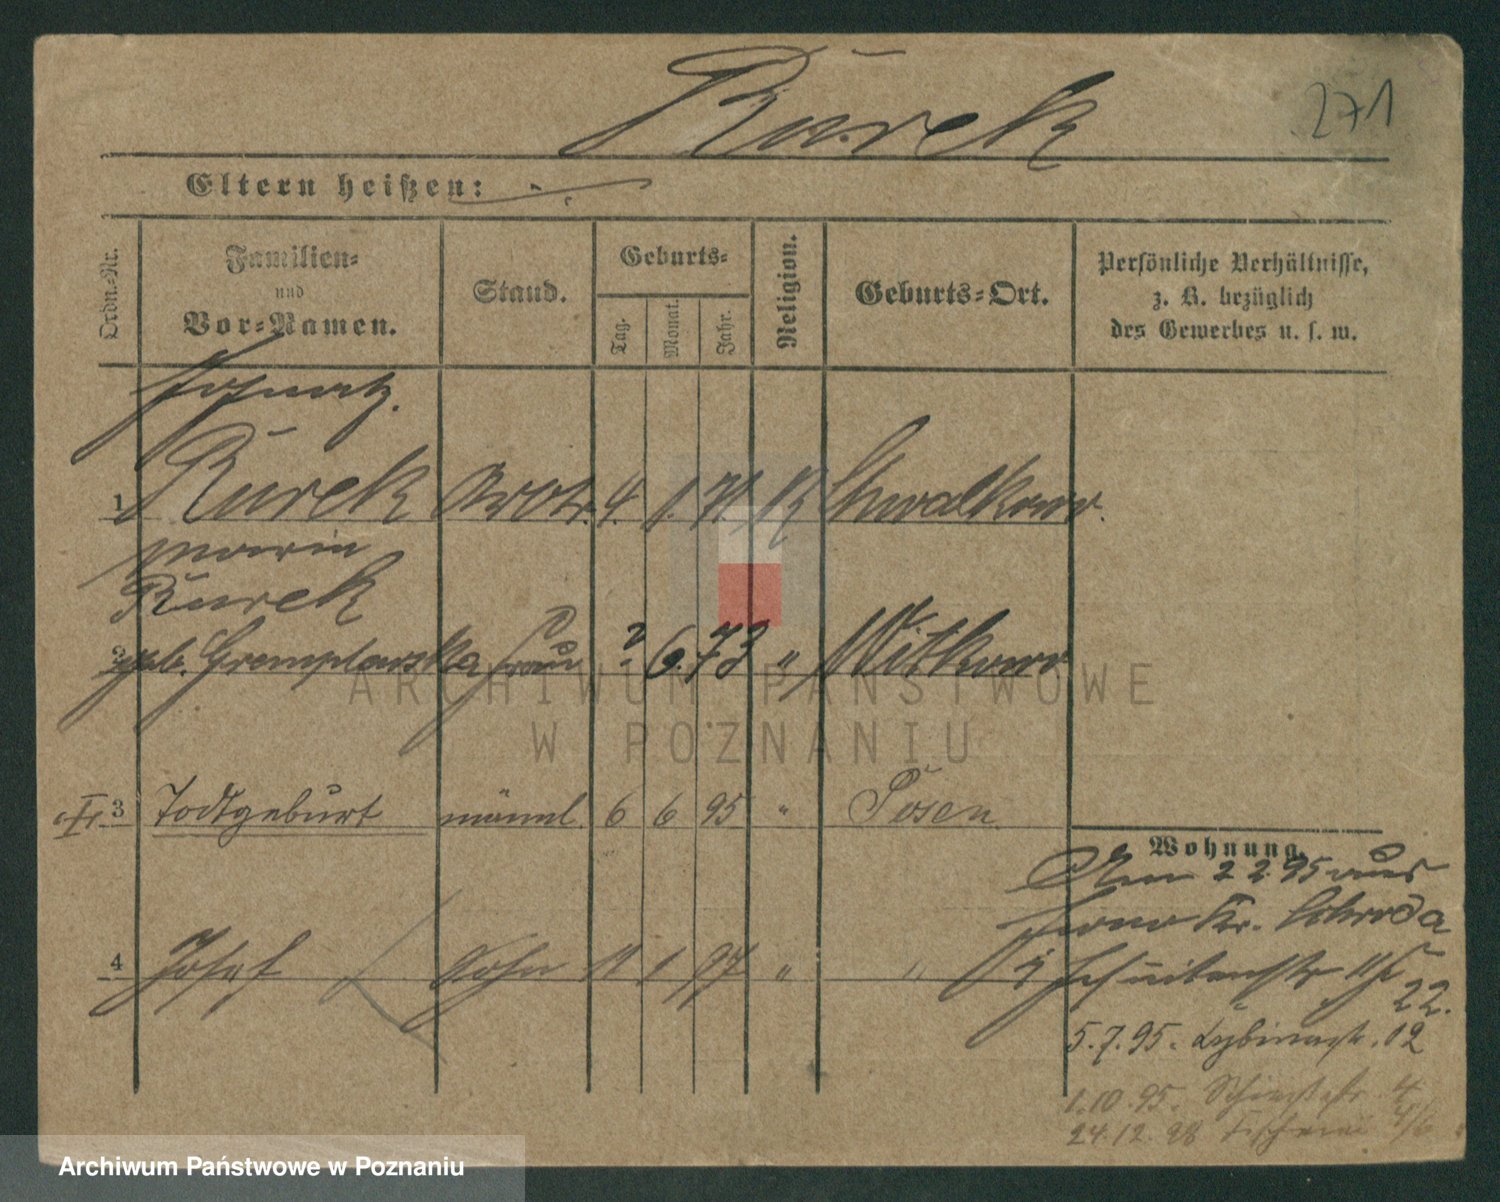 Kurek
271
Eltern heißen:
Ordn.-Nr.
Familien-
und
Vor-Namen.
Stand.
Geburts-
Tag.
Monat.
Jahr.
Religion.
Geburts-Ort.
Persönliche Verhältnisse,
z. B. bezüglich
des Gewerbes u. s. w.
1 Kurek Arbtr. 4. 1. 71. K Chwalkowo.
Kurek
2 geb. Frau ? 6. 73 " Witkowo
ARCHIWUM PAŃSTWOWE
W POZNANIU
3 Todtgeburt männl. 6 6 95 " Posen
Wohnung.
2 2. 95 aus
Kr. Schroda
4 Josef Sohn 11 1 97 " "
22.
5. 7. 95. 12
1. 10. 95. 4
24. 12. 98 4/6
Archiwum Państwowe w Poznaniu